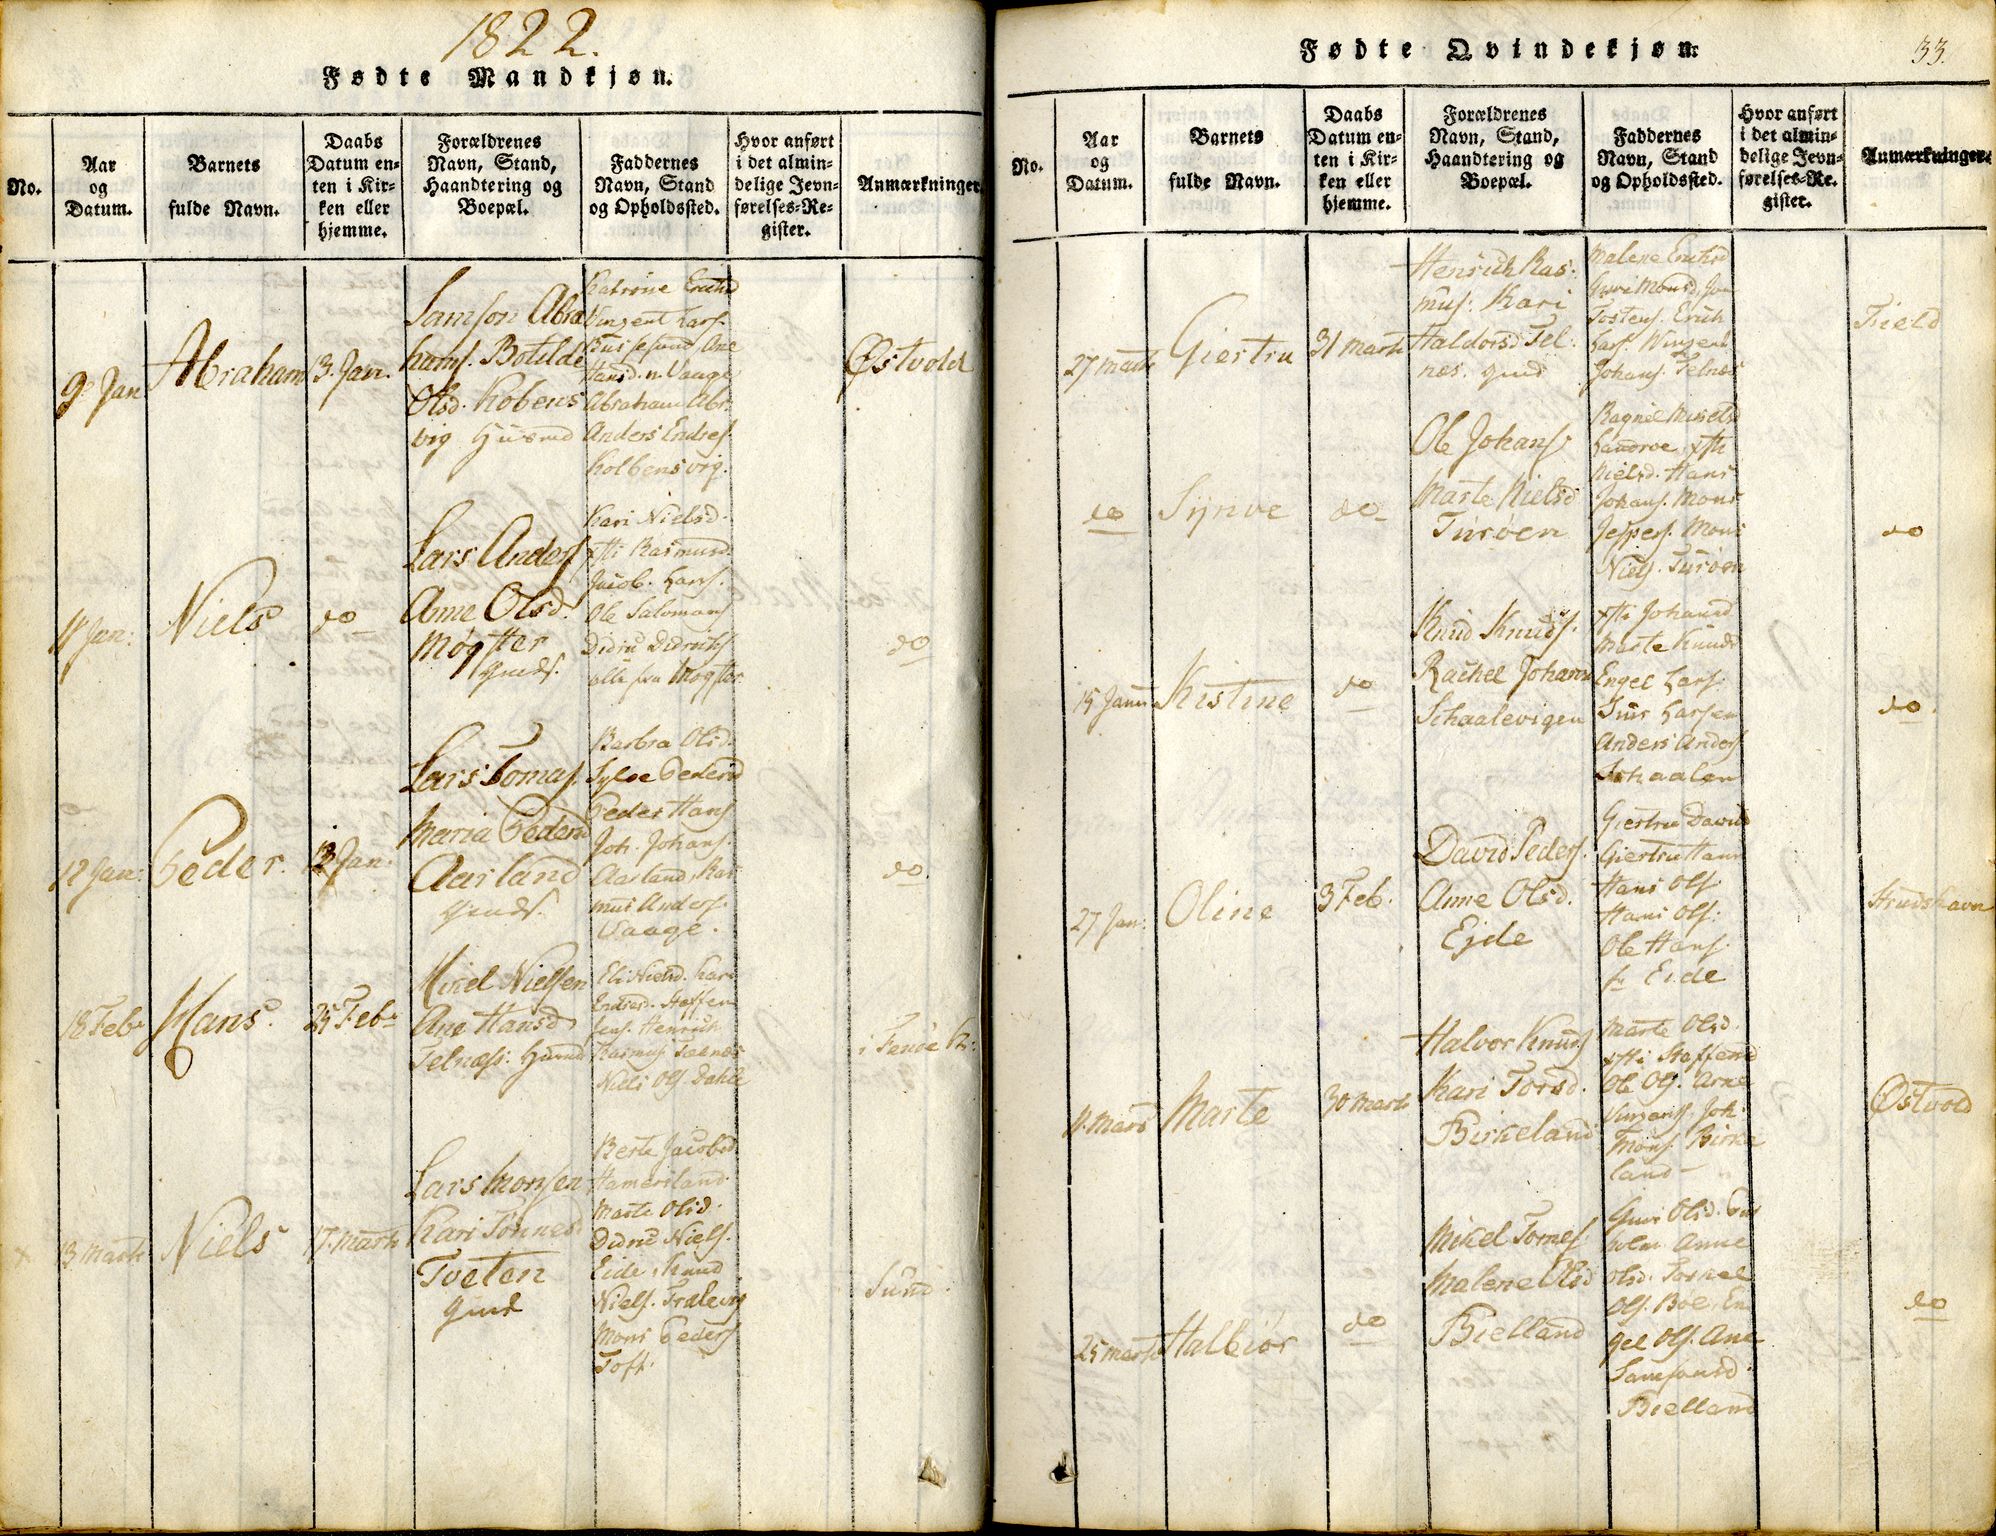 1822.
Fødte Mandkjøn.
No.
Aar
og
Datum.
Barnets
fulde Navn.
Daabs
Datum en-
ten i Kir-
ken eller
hjemme.
Forældrenes
Navn, Stand,
Haandtering og
Boepæl.
Faddernes
Navn, Stand
og Opholdssted.
Hvor anført
i det almin-
delige Jevn-
førelses-Re-
gister.
Anmærkninger.
9 Jan
Abraham
13. Jan.
Samson Abra
hams. Botilde
Olsd. Kobens
vig Husmd
Katrine
Vinzent Lars.
Ane
Hansd. n. Vaage
Abraham Abr.
Anders Endres.
Kolbensvig.
Østvold
11 Jan:
Niels
do
Lars Anders
Anne Olsd.
Møgster
Gmds.
Kari Nielsd.
Rasmusd.
Jacob. Hans.
Ole Salomons
Didric Didrichs
alle fra Møgster
do
12 Jan:
Peder.
13 Jan.
Lars Tomas.
Maria Pedersd
Aarland
Gmds.
Barbra Olsd.
Sylve Pedersd
Peder Hans
Joh. Johans.
Aarland, Ras
mus Anders.
Vaage.
do
18 Feb.
Hans.
25 Feb.
Mikel Nielsen
Ane Hansd
Telnæss. Husmd
Eli Nielsd. Kari
Endresd. Steffen
Jens. Henrich
Rasmus Telnæs
Niels Ols. Dahle
13 Marts
Niels
17. Marts
Lars Monsen
Kari Tønnesd
Tveten
Gmd
Berte Jacobsd
Hamersland.
Marte Olsd.
Didric Niels.
Eide, Knud
Niels. Trælevig
Mons Peders
Toft.
Sund.
Fødte Qvindekjøn.
33.
No.
Aar
og
Datum.
Barnets
fulde Navn.
Daabs
Datum en-
ten i Kir-
ken eller
hjemme.
Forældrenes
Navn, Stand,
Haandtering og
Boepæl.
Faddernes
Navn, Stand
og Opholdssted.
Hvor anført
i det almin-
delige Jevn-
førelses-Re-
gister.
Anmærkninger.
27 Marts
Giertru
31 Marts
Henrich Ras-
mus: Kari
Haldorsd Tel-
næs. Gmd
Malene Erichsd
Guri Monsd, Jon
Tostens. Erich
Lars. Winzent
Johans. Telnæs
Field
do
Synve
do
Ole Johans
Marte Nielsd
Turøen
Ragnil
Nielsd. Hans
Johans. Mons
Jespers. Mons
Niels. Turøen
do
15 Janu
Kistine
do
Knud Knuds.
Rachel Johann
Schaalevigen
Johansd
Marte Knuds
Engel Lars.
Larsen
Anders Anders
Schaalen
do.
27. Jan:
Oline
3 Feb.
David Peders.
Anne Olsd.
Eide
Giertru Davids
Giertru Hans
Hans Ols
Hans Ols:
Ole Hans.
fr Eide
11. Mars
Marte
30 Marts
Halvor Knuds
Kari Torsd.
Birkeland
Marte Olsd.
Steffensd
Ole Ols. Arne
Vinzents. Joh.
Mons. Birke
land
Østvold
25 Marts
Halbiør
do
Mikel Tornes.
Malene Olsd
Bielland
Guri Olsd.
holm Anne
Olsd. Torkel
Ols. Bøe, En
gel Ols. Ane
Samsonsd.
Bielland
do